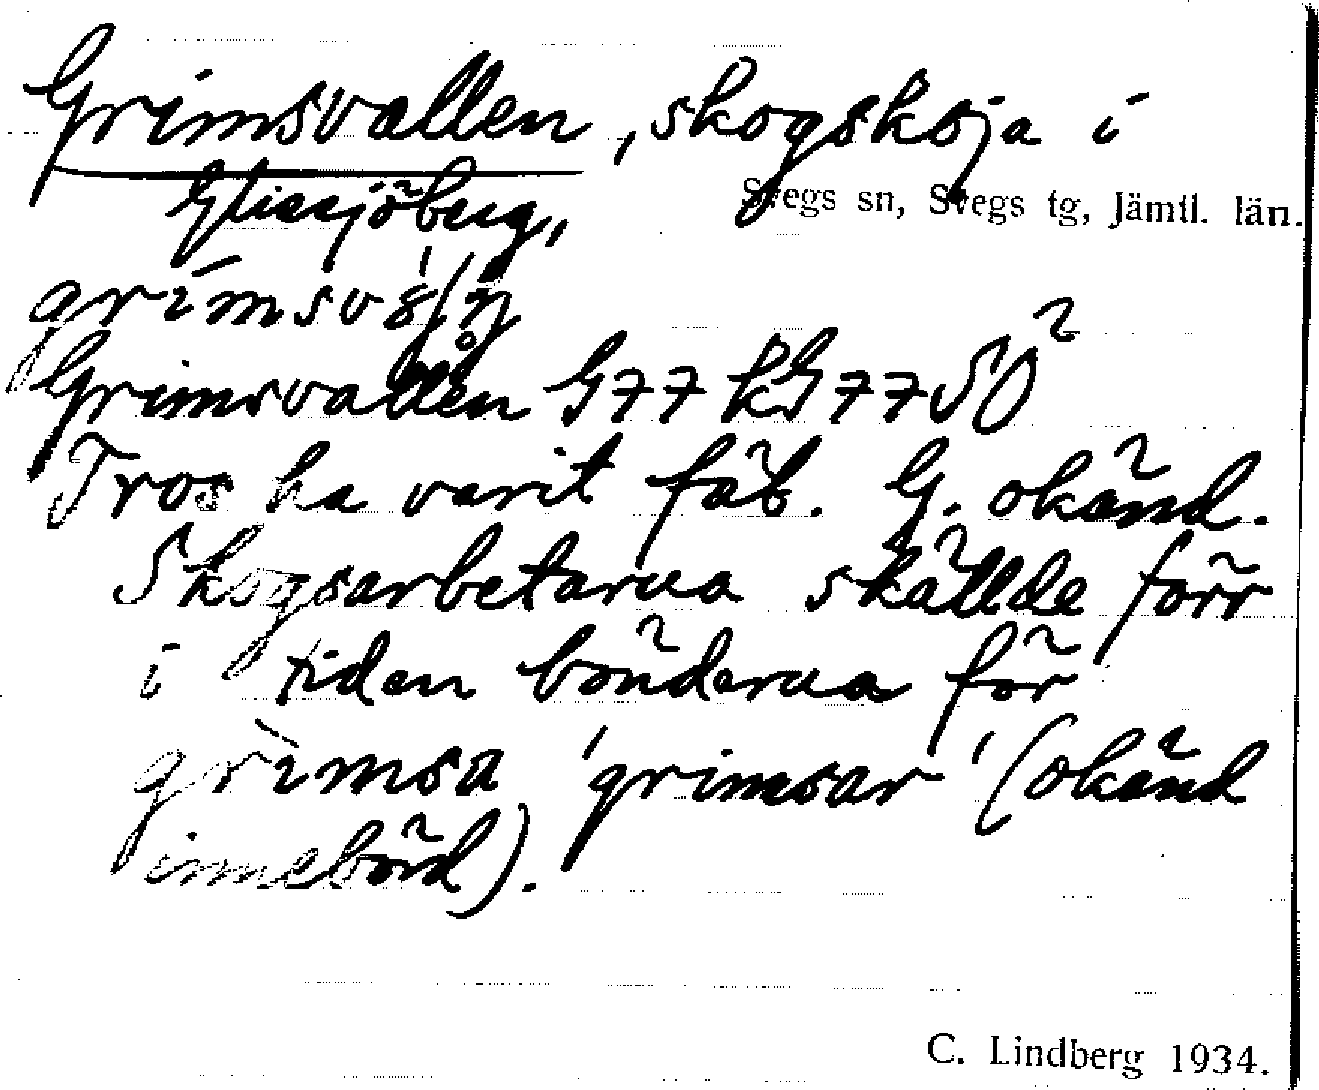 Grimsvallen, skogskoja i
Svegs sn, Svegs tg, Jämtl. län.
Glissjöberg,
Grimsvallen G77 kG77SO²
Tros ha varit fäb. G. okänd.
Skogsarbetarna skällde förr
i tiden bönderna för
grìmsa 'grimsar' (okänd
innebörd).
C. Lindberg 1934.